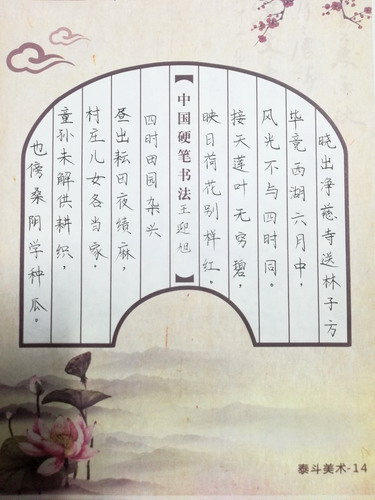 晓出净慈寺送林子方
毕竟西湖六月中，
风光不与四时同。
接天莲叶无穷碧，
映日荷花别样红。
【中国硬笔书法王迎旭】
四时田园杂兴
昼出耘田夜绩麻，
村庄儿女各当家。
童孙未解供耕织，
也傍桑阴学种瓜。
泰斗美术-14